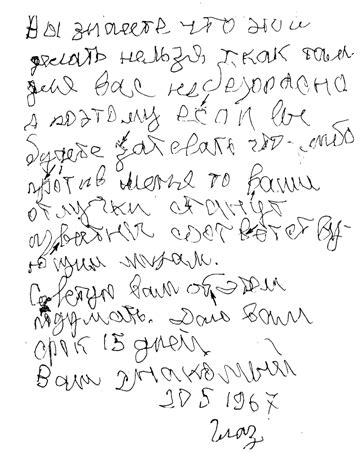 Вы знаете что эти
делать нельзя, так как там
для вас небезопасно
а поэтому если вы
будете затевать что-либо
против меня то ваши
отлучки станут
известны соответству-
ющим
Советую вам об этом
подумать. Даю вам
срок 15 дней
Ваш знакомый
20 5 1967
Глаз